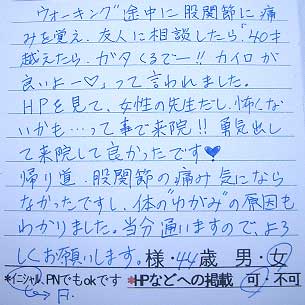 ウォーキング途中に股関節に痛
みを覚え、友人に相談したら“40才
越えたら、ガタくるでー!! カイロが
良いよー♡”って言われました。
HPを見て、女性の先生だし、怖くな
いかも…って事で来院!! 勇気出し
て来院して良かったです♥
帰り道、股関節の痛み気になら
なかったですし、体の“ゆがみ”の原因も
わかりました。当分通いますので、よろ
しくお願いします。様・44歳 男・女
*イニシャル、PNでもokです *HPなどへの掲載 可・不可